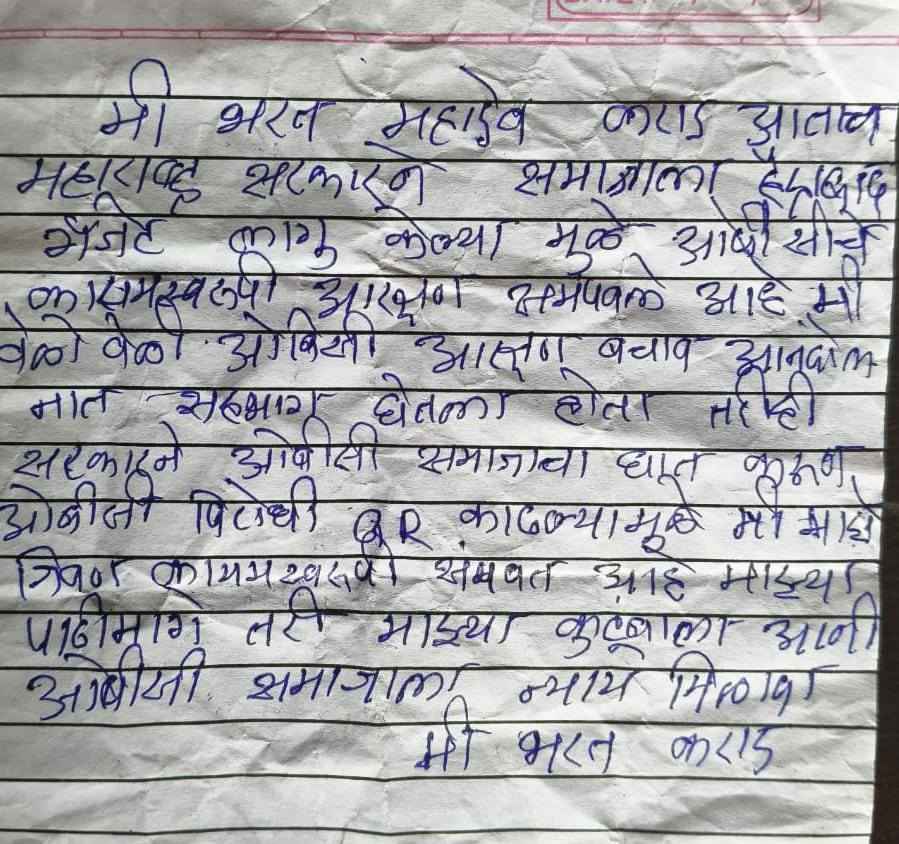 मी भरत महादेव कराड आताच
महाराष्ट्र सरकारने समाजाला हैद्राबाद
गॅजेट लागु केल्या मुळे ओबीसीचे
कायमस्वरूपी आरक्षण समपवले आहे मी
वेळो वेळी ओबिसी आरक्षण बचाव आनदोल
नात सहभाग घेतला होता तरीही
सरकारने ओबीसी समाजाचा घात करून
ओबीसी विरोधी GR काढल्यामूळे मी माझे
जिवन कायमस्वरूपी समवत आहे माझ्या
पाठीमागे तरी माझ्या कुटूबाला आनी
ओबीसी समाजाला न्याय मिळावा
मी भरत कराड